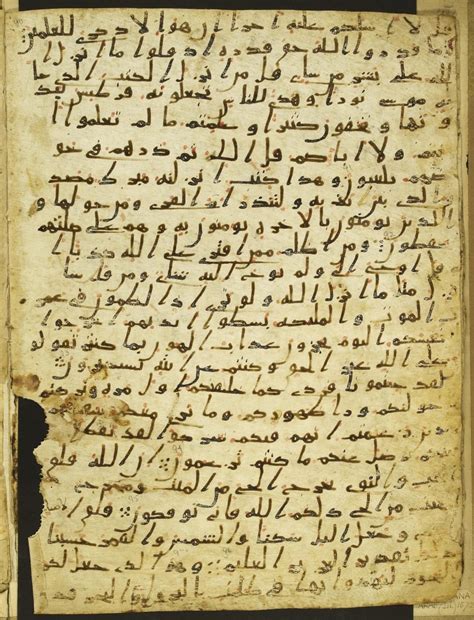 قل لا اسلكم عليه اجرا ان هو الا ذكرى للعلمين
وما قدروا الله حق قدره اذ قالوا ما انزل ا
لله على بشر من شى قل من انزل الكتب الذى جا
به موسى نورا وهدى للناس تجعلونه قرطيس تبد
ونها وتخفون كثيرا وعلمتم ما لم تعلموا ا
نتم ولا اباوكم قل الله ثم ذرهم فى خو
ضهم يلعبون وهذا كتب انزلنه مبرك مصد
ق الذى بين يديه ولتنذر ام القرى ومن حولها و
الذين يومنون بالاخرة يومنون به وهم على صلتهم
يحفظون ومن اظلم ممن افترى على الله كذبا ا
و قال اوحى الى ولم يوح اليه شى ومن قال سا
نزل مثل ما انزل الله ولو ترى اذ الظلمون فى غمر
ت الموت والملئكة بسطوا ايديهم اخرجوا
انفسكم اليوم تجزون عذاب الهون بما كنتم تقولو
ن على الله غير الحق وكنتم عن ايته تستكبرون
لقد جئتمونا فردى كما خلقنكم اول مرة وتركتم
خولنكم ورا ظهوركم وما نرى معكم شفعا
زعمتم انهم فيكم شركوا لقد تقطع
وضل عنكم ما كنتم تزعمون ان الله فلق
والنوى يخرج الحى من الميت ومخرج
من الحى ذلكم الله فانى توفكون فلق ا
وجعل اليل سكنا والشمس والقمر حسبنا
تقدير العزيز العليم وهو الذى جعل لكم
النجوم لتهتدوا بها فى ظلمت البر والبحر قد